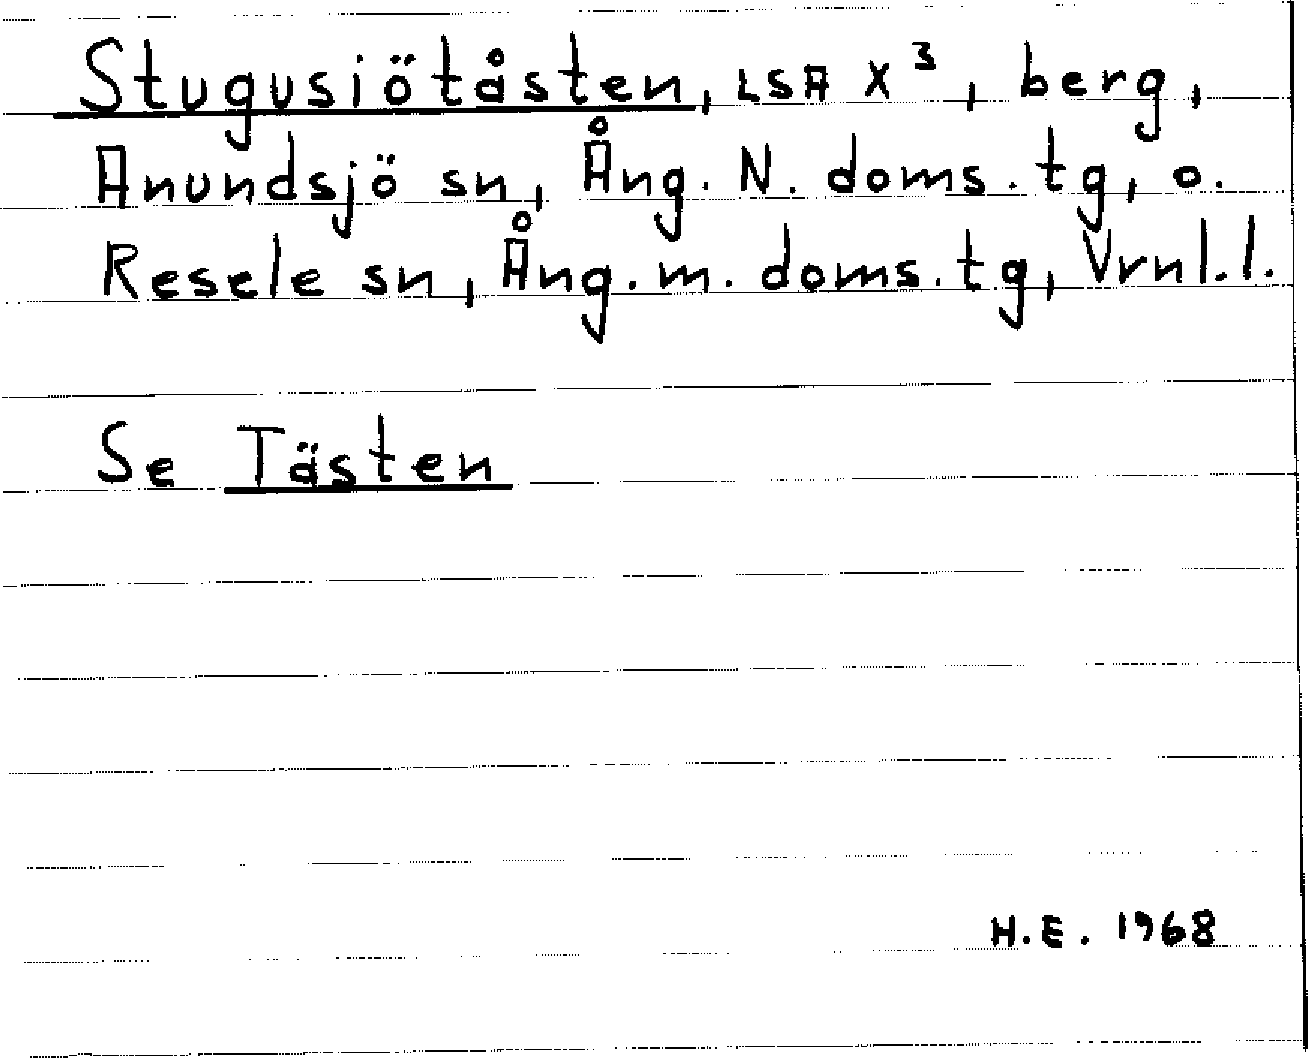 Stugusiötåsten, LSA X³, berg,
Anundsjö sn, Ång. N. doms. tg, o.
Resele sn, Ång. m. doms. tg, Vrnl. l.
Se Tästen
H.E. 1968